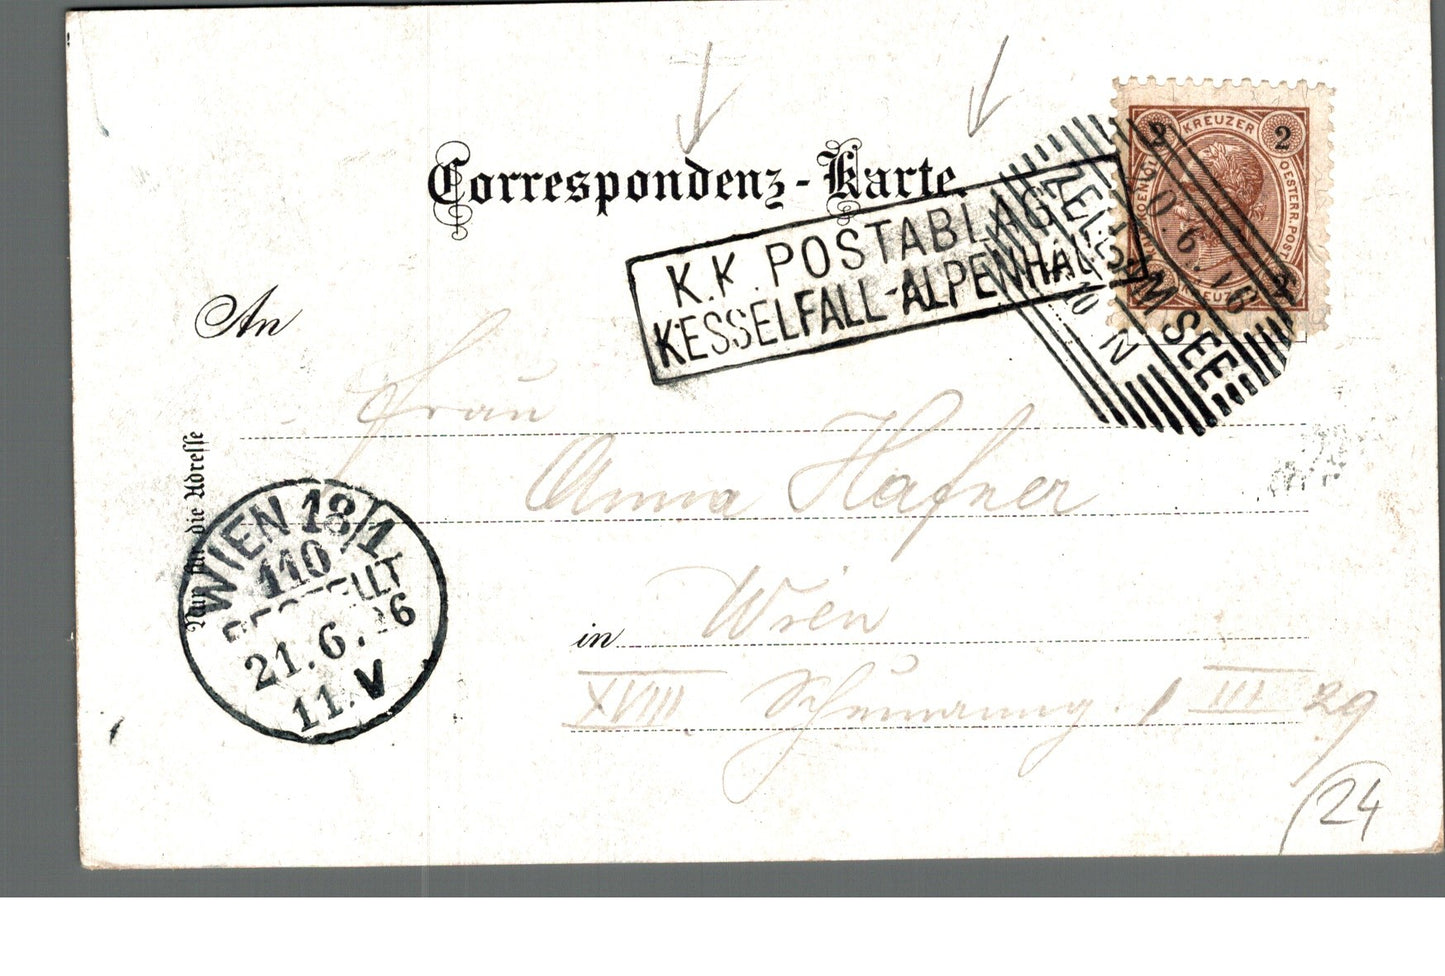 Correspondenz-Karte.
2 KREUZER 2
OESTERR. POST
2
K.K. POSTABLAGE
KESSELFALL-ALPENHAUS
ZELL AM SEE
20.6.96
10 N
An
Frau
Anna Hafner
Nur für die Adresse
WIEN 18/1
110
BESTELLT
21.6.96
11.V
in Wien
XVIII 1 III 29
24